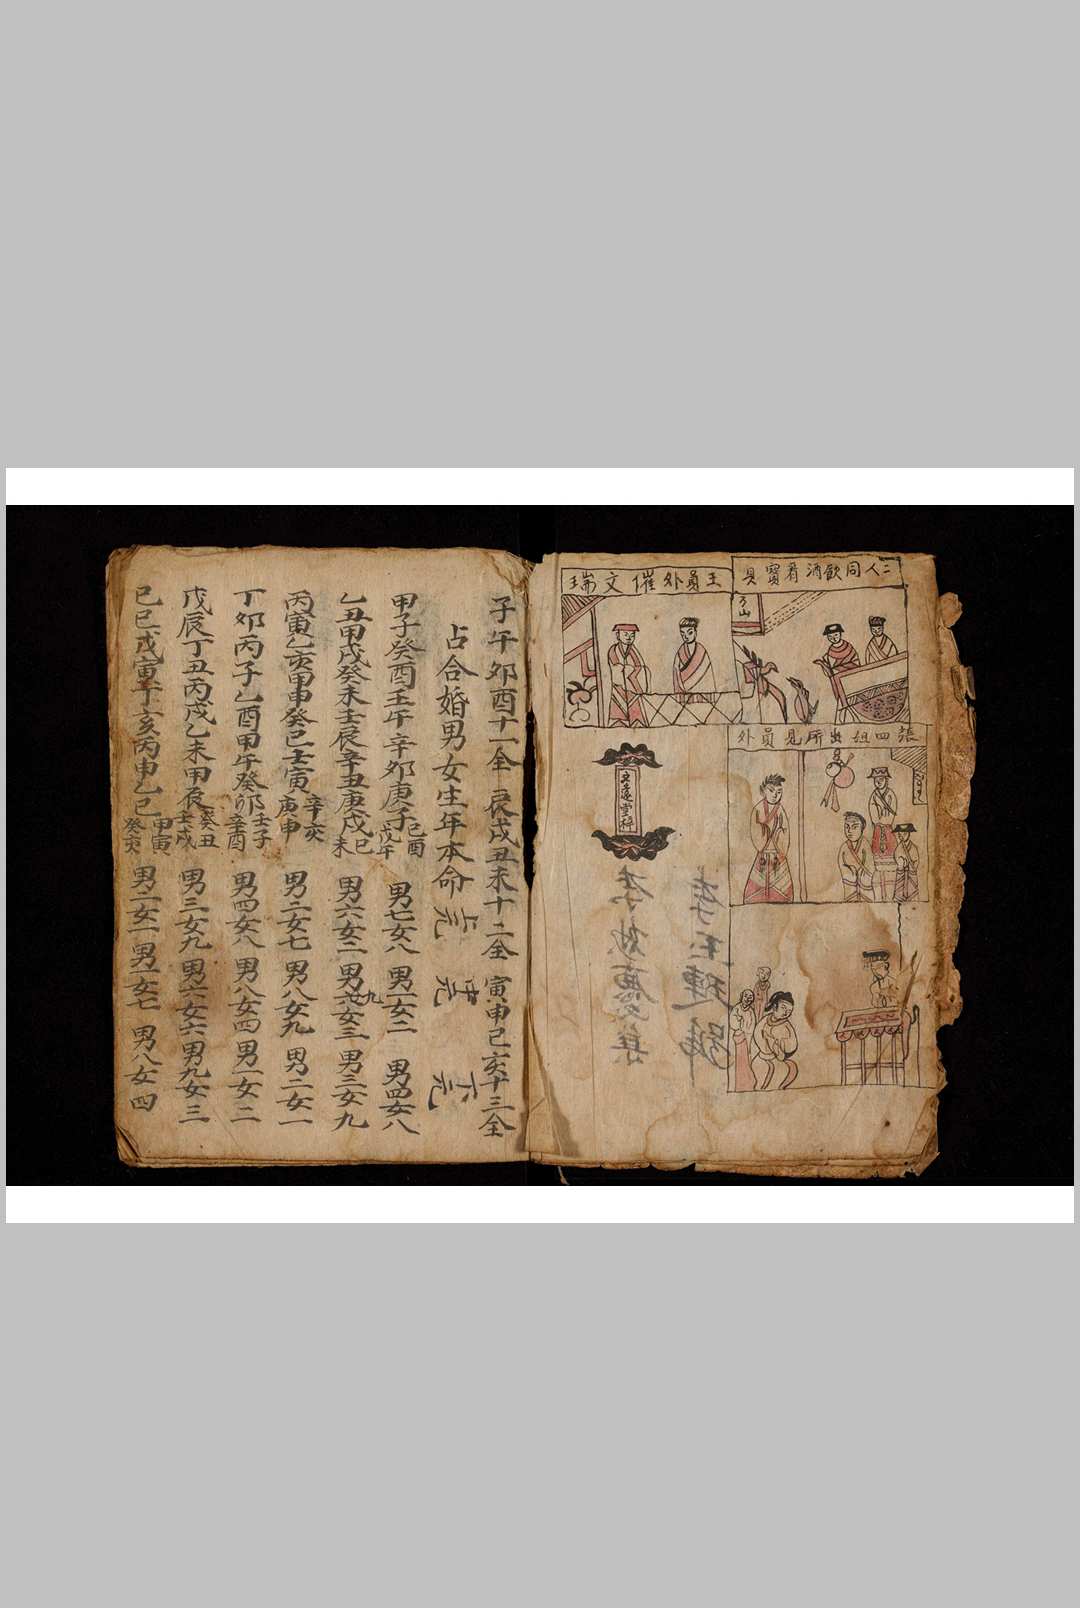 二人同飲酒看寶貝
王員外催文瑞
張四姐出所見員外
李玉璉號
李妙應集
子午卯酉十一全 辰戌丑未十二全 寅申巳亥十三全
占合婚男女生年本命 上元 中元 下元
甲子癸酉壬午辛卯庚子己酉戊午 男七女八 男一女二 男四女八
乙丑甲戌癸未壬辰辛丑庚戌己未 男六女二 男九女三 男三女九
丙寅乙亥甲申癸巳壬寅辛亥庚申 男二女七 男八女九 男二女一
丁卯丙子乙酉甲午癸卯壬子辛酉 男四女八 男八女四 男一女二
戊辰丁丑丙戌乙未甲辰癸丑壬戌 男三女九 男六女六 男九女三
己巳戊寅丁亥丙申乙巳甲寅癸亥 男二女一 男一女七 男八女四